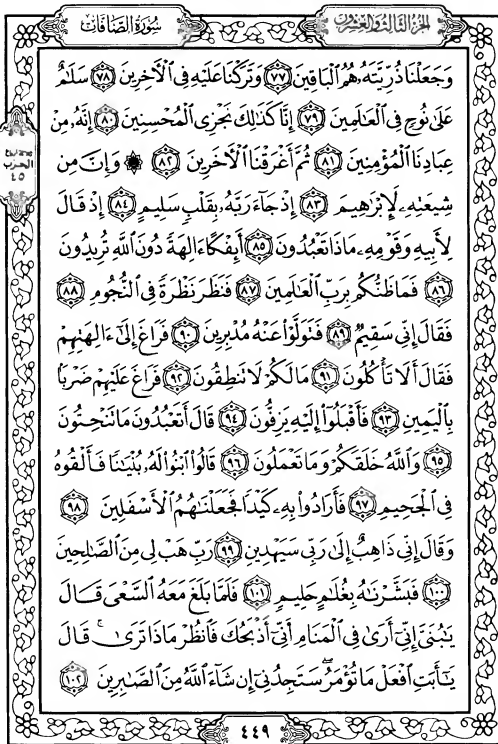 سُورَةُ الصَّافَّاتِ
الجُزْءُ الثَّالِثُ وَالعِشْرُونَ
وَجَعَلْنَا ذُرِّيَّتَهُۥ هُمُ ٱلْبَاقِينَ ٧٧ وَتَرَكْنَا عَلَيْهِ فِى ٱلْأٓخِرِينَ ٧٨ سَلَـٰمٌ
عَلَىٰ نُوحٍ فِى ٱلْعَـٰلَمِينَ ٧٩ إِنَّا كَذَٰلِكَ نَجْزِى ٱلْمُحْسِنِينَ ٨٠ إِنَّهُۥ مِنْ
عِبَادِنَا ٱلْمُؤْمِنِينَ ٨١ ثُمَّ أَغْرَقْنَا ٱلْأٓخَرِينَ ٨٢ ۞ وَإِنَّ مِن
الحزب
٤٥
شِيعَتِهِۦ لَإِبْرَٰهِيمَ ٨٣ إِذْ جَآءَ رَبَّهُۥ بِقَلْبٍ سَلِيمٍ ٨٤ إِذْ قَالَ
لِأَبِيهِ وَقَوْمِهِۦ مَاذَا تَعْبُدُونَ ٨٥ أَئِفْكًا ءَالِهَةً دُونَ ٱللَّهِ تُرِيدُونَ
٨٦ فَمَا ظَنُّكُم بِرَبِّ ٱلْعَـٰلَمِينَ ٨٧ فَنَظَرَ نَظْرَةً فِى ٱلنُّجُومِ ٨٨
فَقَالَ إِنِّى سَقِيمٌ ٨٩ فَتَوَلَّوْا۟ عَنْهُ مُدْبِرِينَ ٩٠ فَرَاغَ إِلَىٰٓ ءَالِهَتِهِمْ
فَقَالَ أَلَا تَأْكُلُونَ ٩١ مَا لَكُمْ لَا تَنطِقُونَ ٩٢ فَرَاغَ عَلَيْهِمْ ضَرْبًۢا
بِٱلْيَمِينِ ٩٣ فَأَقْبَلُوٓا۟ إِلَيْهِ يَزِفُّونَ ٩٤ قَالَ أَتَعْبُدُونَ مَا تَنْحِتُونَ
٩٥ وَٱللَّهُ خَلَقَكُمْ وَمَا تَعْمَلُونَ ٩٦ قَالُوا۟ ٱبْنُوا۟ لَهُۥ بُنْيَـٰنًا فَأَلْقُوهُ
فِى ٱلْجَحِيمِ ٩٧ فَأَرَادُوا۟ بِهِۦ كَيْدًا فَجَعَلْنَـٰهُمُ ٱلْأَسْفَلِينَ ٩٨
وَقَالَ إِنِّى ذَاهِبٌ إِلَىٰ رَبِّى سَيَهْدِينِ ٩٩ رَبِّ هَبْ لِى مِنَ ٱلصَّـٰلِحِينَ
١٠٠ فَبَشَّرْنَـٰهُ بِغُلَـٰمٍ حَلِيمٍ ١٠١ فَلَمَّا بَلَغَ مَعَهُ ٱلسَّعْىَ قَالَ
يَـٰبُنَىَّ إِنِّىٓ أَرَىٰ فِى ٱلْمَنَامِ أَنِّىٓ أَذْبَحُكَ فَٱنظُرْ مَاذَا تَرَىٰ ۚ قَالَ
يَـٰٓأَبَتِ ٱفْعَلْ مَا تُؤْمَرُ ۖ سَتَجِدُنِىٓ إِن شَآءَ ٱللَّهُ مِنَ ٱلصَّـٰبِرِينَ ١٠٢
٤٤٩